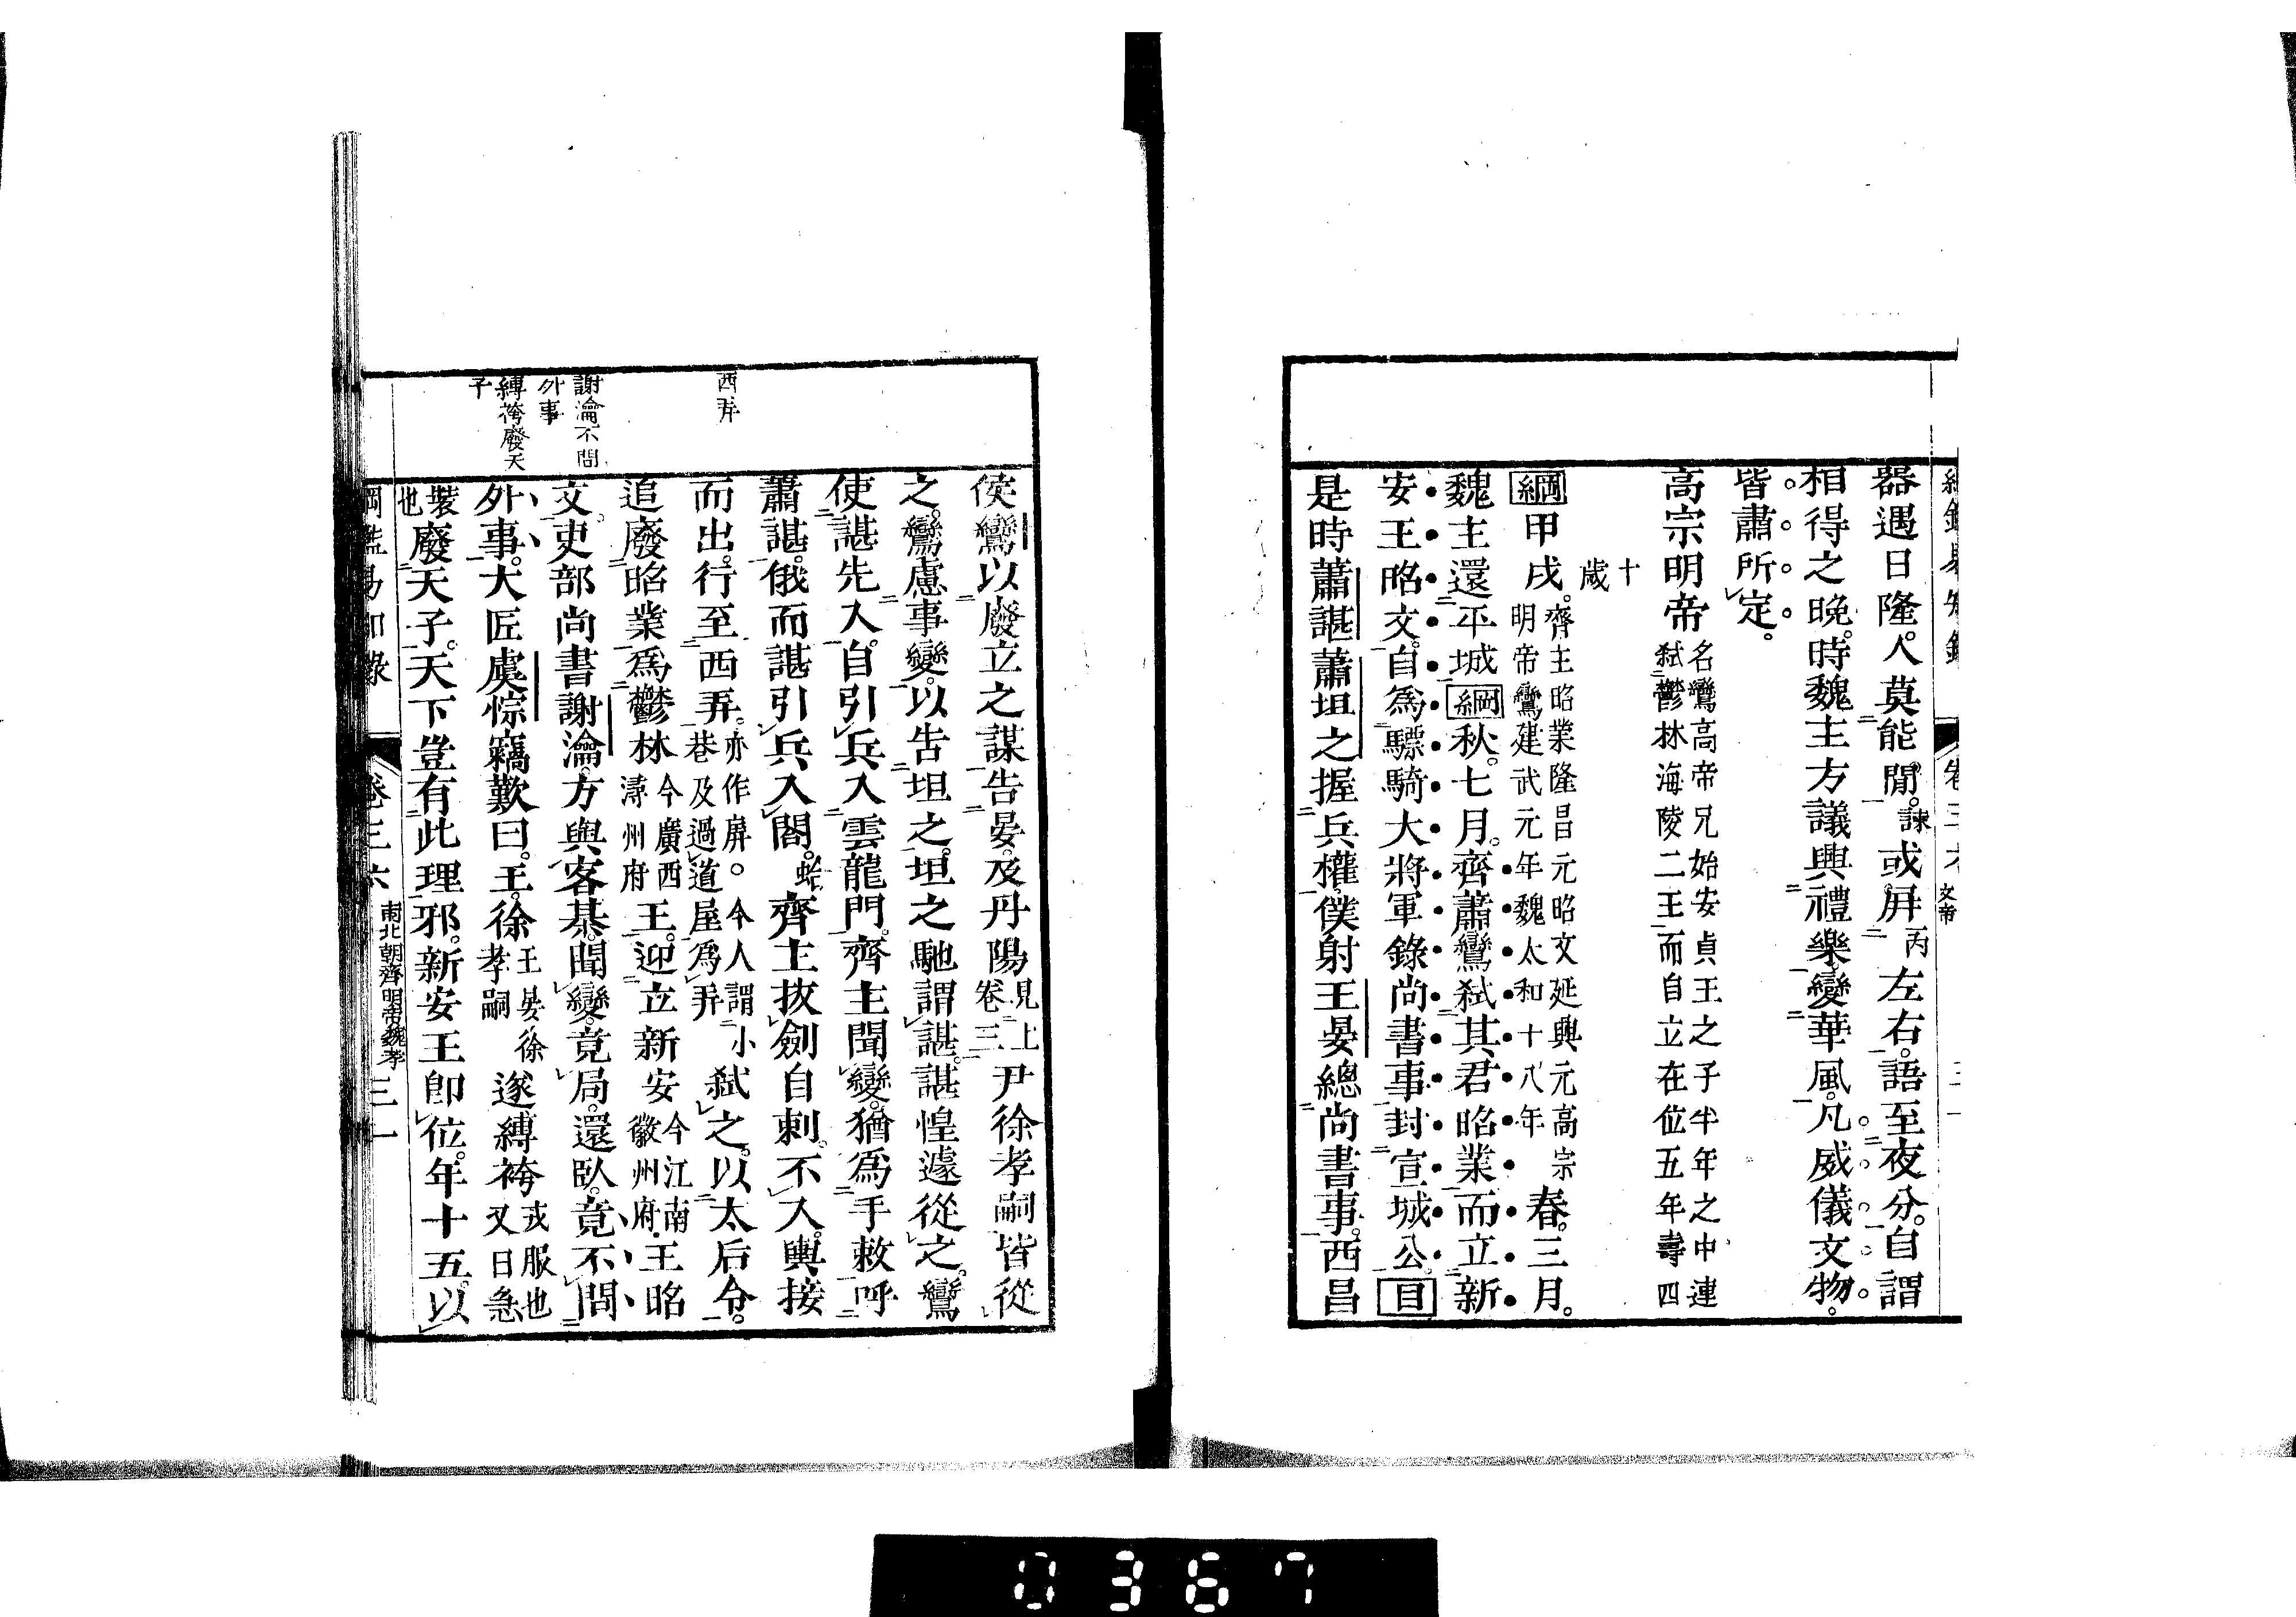 器遇日隆人莫能間諫或屛丙左右語至夜分自謂
相得之晚時魏主方議興禮樂變華風凡威儀文物
皆肅所定
高宗明帝名鸞高帝兄始安貞王之子半年之中連
弑鬱林海陵二王而自立在位五年壽四
十
歲
綱甲戌齊主昭業隆昌元昭文延興元高宗
明帝鸞建武元年魏太和十八年春三月
魏主還平城綱秋七月齊蕭鸞弑其君昭業而立新
安王昭文自爲驃騎大將軍錄尚書事封宣城公目
是時蕭諶蕭坦之握兵權僕射王晏總尚書事西昌
西弄
謝瀹不問
外事
縛袴廢天
子
侯鸞以廢立之謀告晏及丹陽見上
卷三尹徐孝嗣皆從
之鸞慮事變以告坦之坦之馳謂諶諶惶遽從之鸞
使諶先入自引兵入雲龍門齊主聞變猶爲手敕呼
蕭諶俄而諶引兵入閤蛤齊主拔劍自刺不入輿接
而出行至西弄亦作屛。今人謂小
巷及過道屋爲弄弑之以太后令
追廢昭業爲鬱林今廣西
潯州府王迎立新安今江南
徽州府王昭
文吏部尚書謝瀹方與客棊聞變竟局還臥竟不問
外事大匠虞悰竊歎曰王徐王晏徐
孝嗣遂縛袴戎服也
又曰急
裝
也廢天子天下豈有此理邪新安王卽位年十五以
綱鑑易知錄 卷三六 南北朝齊明帝魏孝 三一
文帝